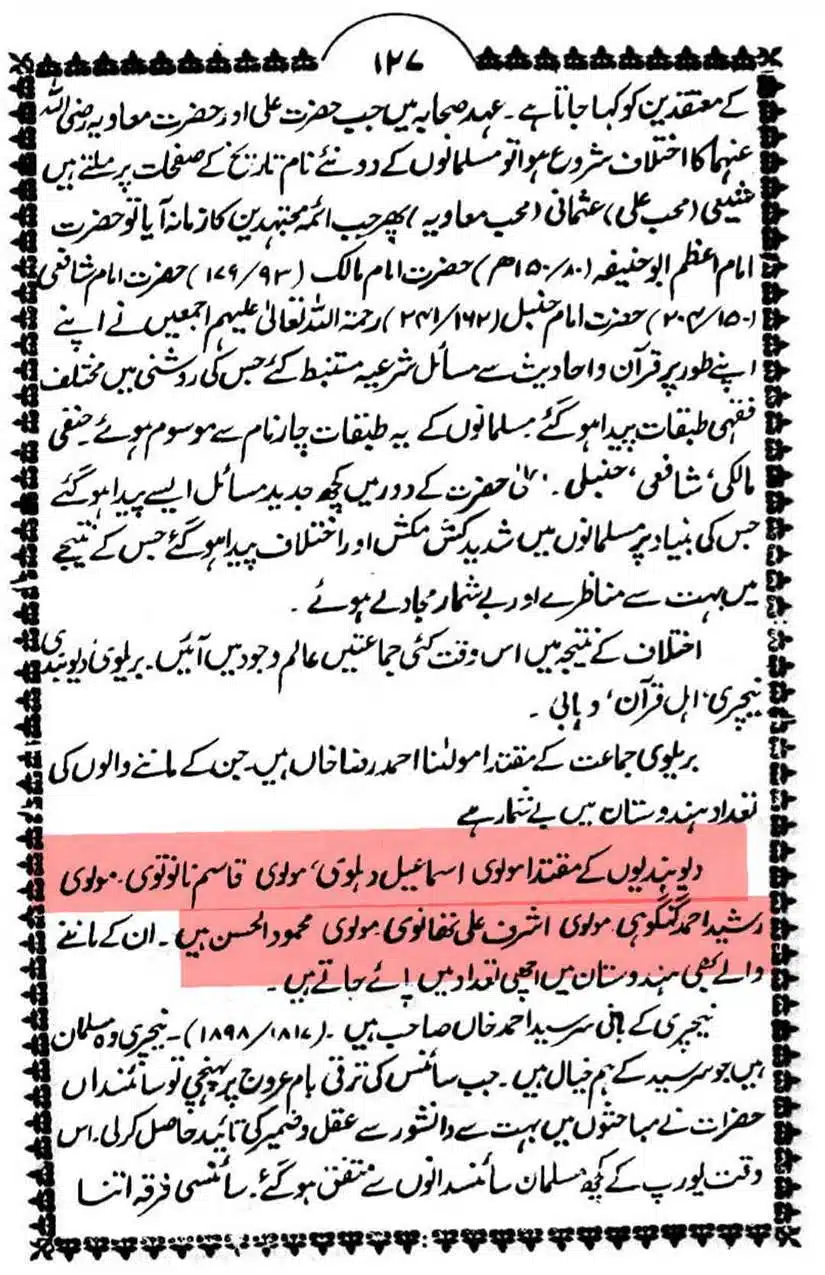 ۱۲۷
کے معتقدین کو کہا جاتا ہے۔ عہد صحابہ میں جب حضرت علی اور حضرت معاویہ رضی اللہ
عنہما کا اختلاف شروع ہوا تو مسلمانوں کے دو نئے نام تاریخ کے صفحات پر ملتے ہیں
شیعی (محب علی) عثمانی (محب معاویہ) پھر جب ائمہ مجتہدین کا زمانہ آیا تو حضرت
امام اعظم ابو حنیفہ (۸۰/۱۵۰ھ) حضرت امام مالک (۹۳/۱۷۹) حضرت امام شافعی
(۱۵۰/۲۰۴) حضرت امام حنبل (۱۶۲/۲۴۱) رحمۃ اللہ تعالیٰ علیہم اجمعین نے اپنے
اپنے طور پر قرآن و احادیث سے مسائل شرعیہ مستنبط کئے جس کی روشنی میں مختلف
فقہی طبقات پیدا ہو گئے مسلمانوں کے یہ طبقات چار نام سے موسوم ہوئے۔ حنفی
مالکی، شافعی، حنبلی۔ حضرت کے دور میں کچھ جدید مسائل ایسے پیدا ہو گئے
جس کی بنیاد پر مسلمانوں میں شدید کش مکش اور اختلاف پیدا ہو گئے جس کے نتیجے
میں بہت سے مناظرے اور بے شمار مجادلے ہوئے۔
اختلاف کے نتیجہ میں اس وقت کئی جماعتیں عالم وجود میں آئیں۔ بریلوی، دیوبندی
نیچری، اہل قرآن، وہابی۔
بریلوی جماعت کے مقتدا مولٰنا احمد رضا خاں ہیں۔ جن کے ماننے والوں کی
تعداد ہندوستان میں بے شمار ہے
دیوبندیوں کے مقتدا مولوی اسماعیل دہلوی، مولوی قاسم نانوتوی۔ مولوی
رشید احمد گنگوہی۔ مولوی اشرف علی تھانوی مولوی محمود الحسن ہیں۔ ان کے ماننے
والے بھی ہندوستان میں اچھی تعداد میں پائے جاتے ہیں۔
نیچری کے بانی سرسید احمد خاں صاحب ہیں۔ (۱۸۱۷/۱۸۹۸)۔ نیچری وہ مسلمان
ہیں جو سرسید کے ہم خیال ہیں۔ جب سائنس کی ترقی بام عروج پر پہنچی تو سائنسداں
حضرات نے مباحثوں میں بہت سے دانشور سے عقل و ضمیر کی تائید حاصل کر لی۔ اس
وقت یورپ کے کچھ مسلمان سائنسدانوں سے متفق ہو گئے۔ سائنسی فرقہ اتنا